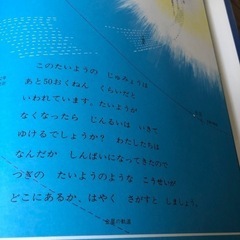 このたいようの じゅみょうは
あと50おくねん くらいだと
いわれています。たいようが
なくなったら じんるいは いきて
ゆけるでしょうか？ わたしたちは
なんだか しんぱいになってきたので
つぎの たいようのような こうせいが
どこにあるか、はやく さがすと しましょう。
水星の軌道